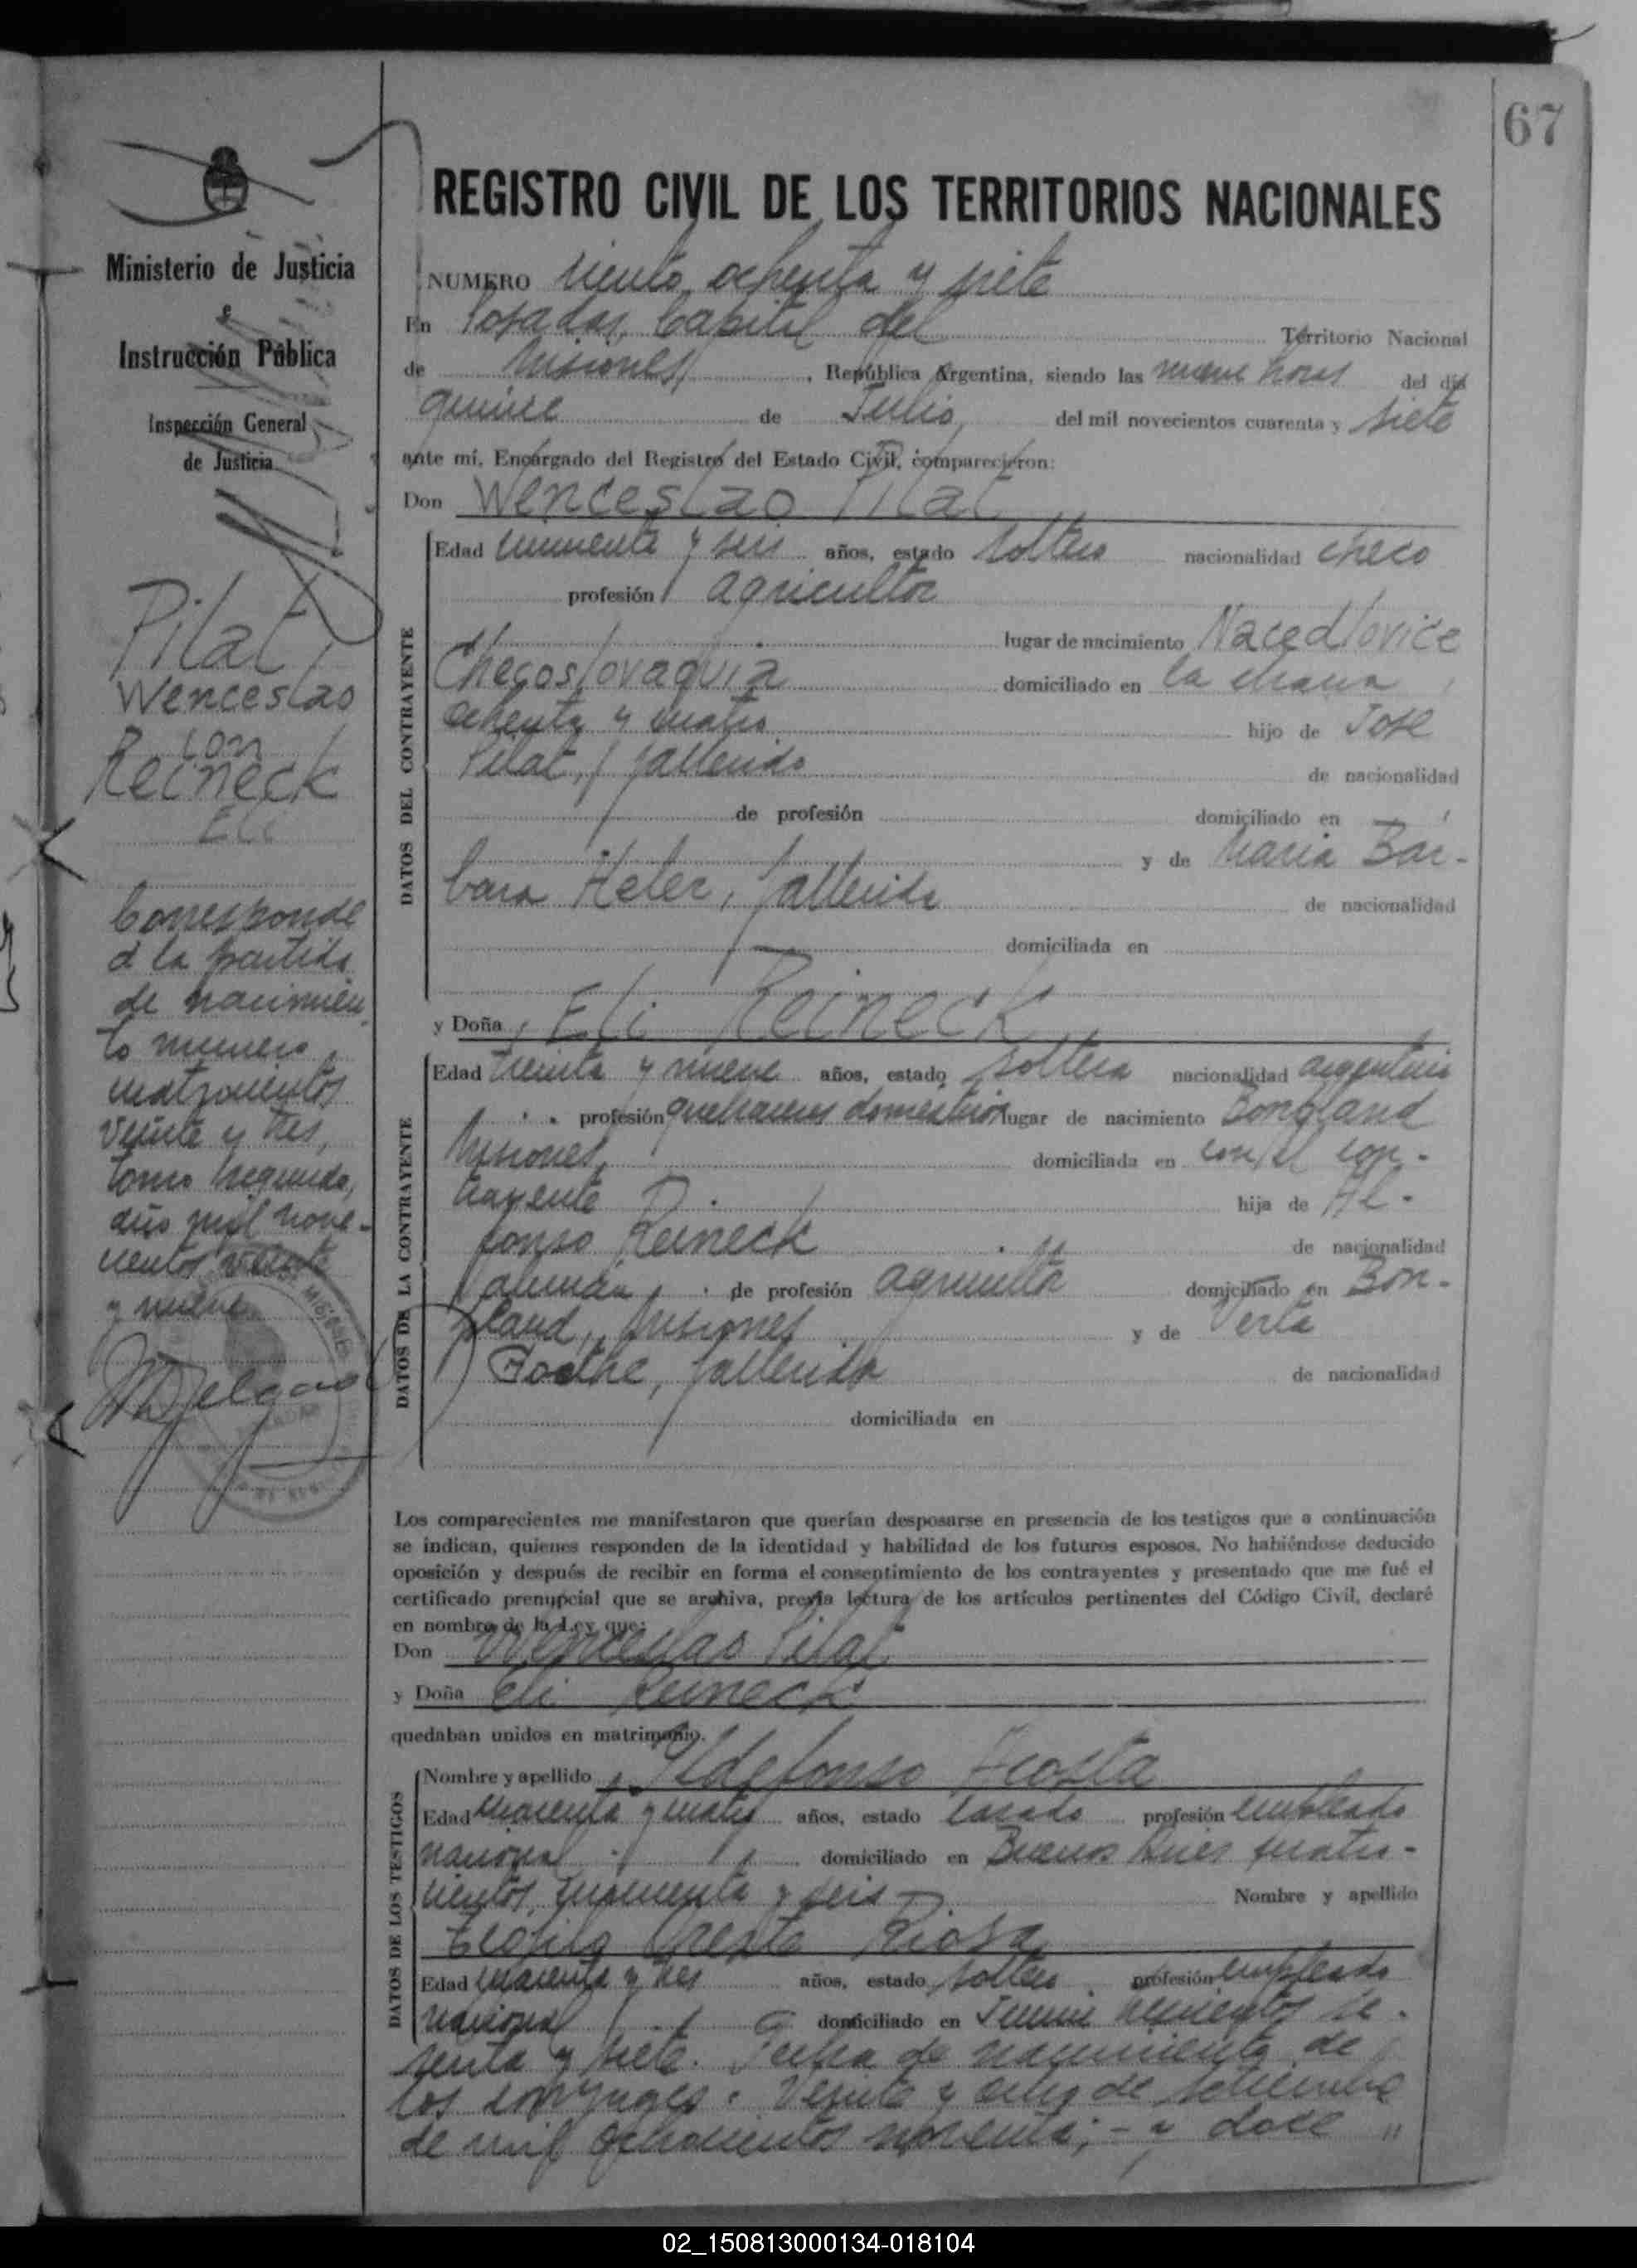 67
REGISTRO CIVIL DE LOS TERRITORIOS NACIONALES
Ministerio de Justicia
e
Instrucción Pública
Inspección General
de Justicia
Pilat
Wenceslao
con
Reineck
Eli
Corresponde
a la partida
de nacimien
to numero
cuatrocientos
veinte y tres,
tomo segundo,
año mil nove-
cientos veinte
y nueve.
NUMERO ciento ochenta y siete
En Posadas, Capital del Territorio Nacional
de Misiones, República Argentina, siendo las nueve horas del día
quince de Julio, del mil novecientos cuarenta y siete
ante mí, Encargado del Registro del Estado Civil, comparecieron:
Don Wenceslao Pilat
DATOS DEL CONTRAYENTE
Edad cincuenta y seis años, estado soltero nacionalidad checo
profesión agricultor
lugar de nacimiento Nacedlovice
Checoslovaquia domiciliado en la chacra
ochenta y cuatro hijo de José
Pilat, fallecido de nacionalidad
de profesión domiciliado en
y de Maria Bár-
bara Heler, fallecida de nacionalidad
domiciliada en
y Doña Eli Reineck
DATOS DE LA CONTRAYENTE
Edad treinta y nueve años, estado soltera nacionalidad argentina
profesión quehaceres domesticos lugar de nacimiento Bonpland
Misiones, domiciliada en con el con-
trayente hija de Al-
fonso Reineck de nacionalidad
alemán, de profesión agricultor domiciliado en Bon-
pland, Misiones y de Verta
Goethe, fallecida de nacionalidad
domiciliada en
Los comparecientes me manifestaron que querían desposarse en presencia de los testigos que a continuación
se indican, quienes responden de la identidad y habilidad de los futuros esposos. No habiéndose deducido
oposición y después de recibir en forma el consentimiento de los contrayentes y presentado que me fué el
certificado prenupcial que se archiva, previa lectura de los artículos pertinentes del Código Civil, declaré
en nombre de la Ley que:
Don Wenceslao Pilat
y Doña Eli Reineck
quedaban unidos en matrimonio.
DATOS DE LOS TESTIGOS
Nombre y apellido Ildefonso Acosta
Edad cuarenta y cuatro años, estado casado profesión empleado
nacional domiciliado en Buenos Aires cuatro-
cientos, cincuenta y seis Nombre y apellido
Teofilo Riosa
Edad cuarenta y tres años, estado soltero profesión empleado
nacional domiciliado en Junin se-
senta y siete. Fecha de nacimiento de
los conyuges: Veinte y ocho de setiembre
de mil ochocientos noventa; - y doce "
02_150813000134-018104